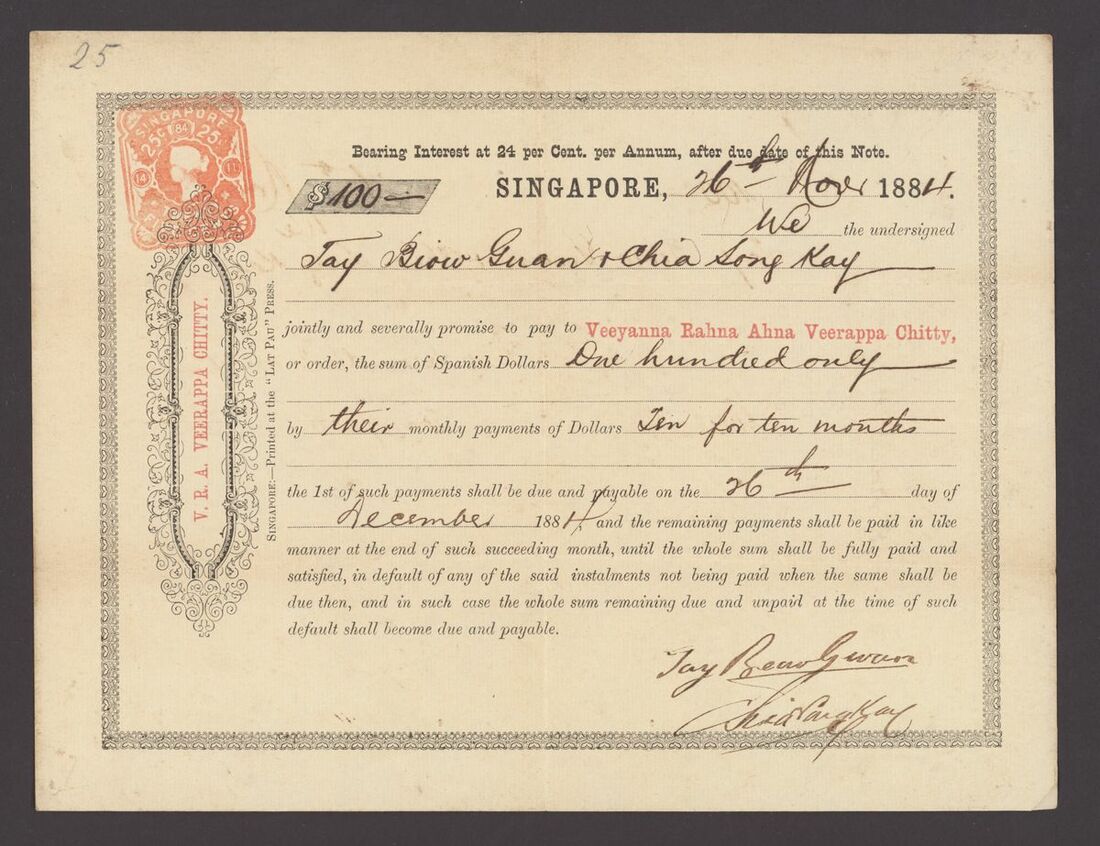 25
SINGAPORE
25 CT 84 25
14 11
Bearing Interest at 24 per Cent. per Annum, after due date of this Note.
$ 100
SINGAPORE, 26th Novr 1884.
We the undersigned
Tay Biow Guan & Chia Song Kay
jointly and severally promise to pay to Veeyanna Rahna Ahna Veerappa Chitty,
or order, the sum of Spanish Dollars One hundred only
by their monthly payments of Dollars Ten for ten months
the 1st of such payments shall be due and payable on the 26th day of
December 1884, and the remaining payments shall be paid in like
manner at the end of such succeeding month, until the whole sum shall be fully paid and
satisfied, in default of any of the said instalments not being paid when the same shall be
due then, and in such case the whole sum remaining due and unpaid at the time of such
default shall become due and payable.
V. R. A. VEERAPPA CHITTY.
SINGAPORE:—Printed at the "LAT PAU" PRESS.
Tay Beow Gwan
Chia Song Kay